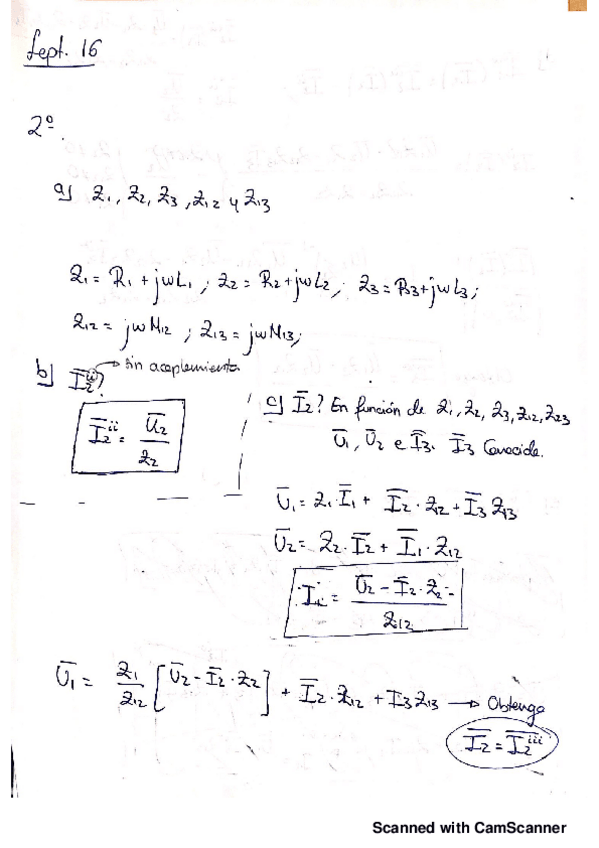 Sept. 16
2º.
a) Z1, Z2, Z3, Z12 y Z13
Z1 = R1 + jωL1 ; Z2 = R2 + jωL2 ; Z3 = R3 + jωL3 ;
Z12 = jωM12 ; Z13 = jωM13 ;
b) I̅2ⁱⁱ? → Sin acoplamiento
I̅2ⁱⁱ = U̅2 / Z2
c) I̅2? En función de Z1, Z2, Z3, Z12, Z23
U̅1, U̅2 e I̅3. I̅3 Conocida.
U̅1 = Z1·I̅1 + I̅2·Z12 + I̅3 Z13
U̅2 = Z2·I̅2 + I̅1·Z12
= (U̅2 - I̅2·Z2) / Z12
U̅1 = Z1/Z12 [U̅2 - I̅2·Z2] + I̅2·Z12 + I3 Z13 → Obtengo
I̅2 = I̅2ⁱⁱⁱ
Scanned with CamScanner